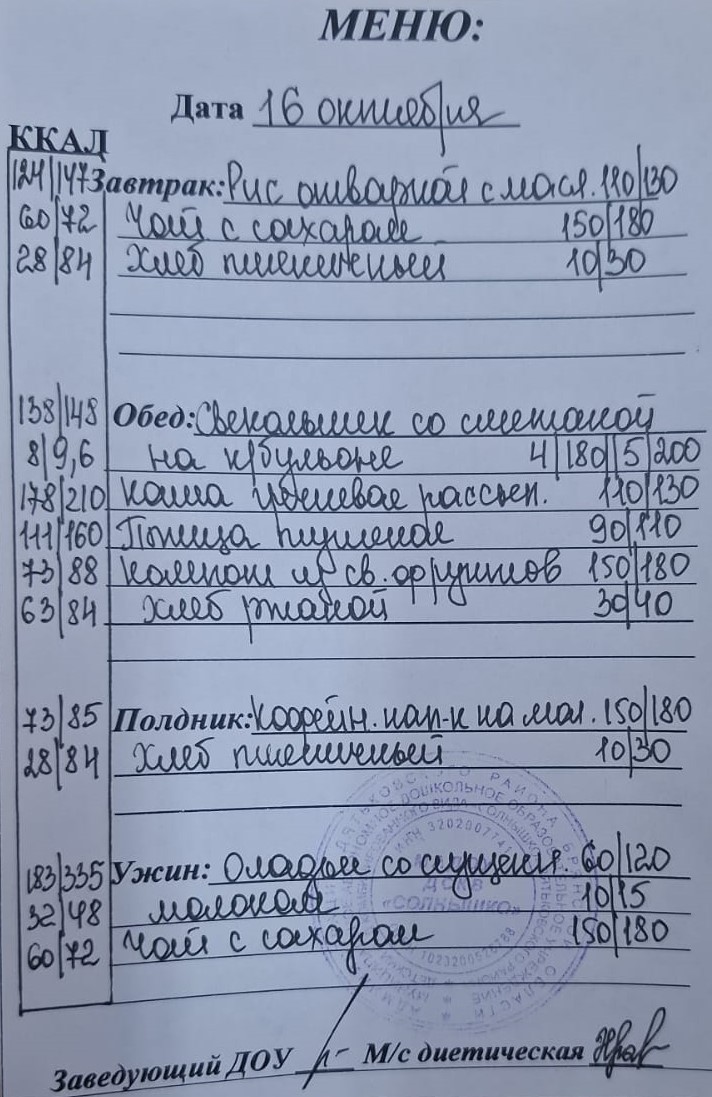 МЕНЮ:
Дата 16 октября
ККАЛ
124/147 Завтрак: Рис отварной с масл. 110/130
60/72 Чай с сахаром 150/180
28/84 Хлеб пшеничный 10/30
138/148 Обед: Свекольник со сметаной
8/9,6 на к/бульоне 4/180/5/200
178/210 каша гречневая рассып. 110/130
111/160 Птица тушеная 90/110
73/88 компот из св. фруктов 150/180
63/84 хлеб ржаной 30/40
73/85 Полдник: Кофейн. нап-к на мол. 150/180
28/84 Хлеб пшеничный 10/30
183/335 Ужин: Оладьи со сгущен. 60/120
32/48 молоком 10/15
60/72 Чай с сахаром 150/180
«СОЛНЫШКО»
Заведующий ДОУ М/с диетическая